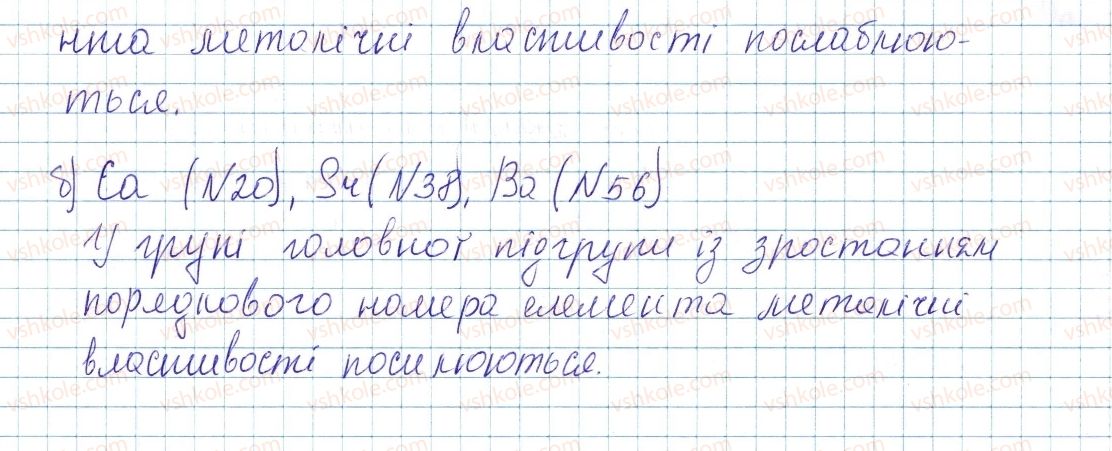 нта металічні властивості послаблюю-
ться.
б) Ca (N20), Sr (N38), Ba (N56)
У групі головної підгрупи із зростанням
порядкового номера елемента металічні
властивості посилюються.